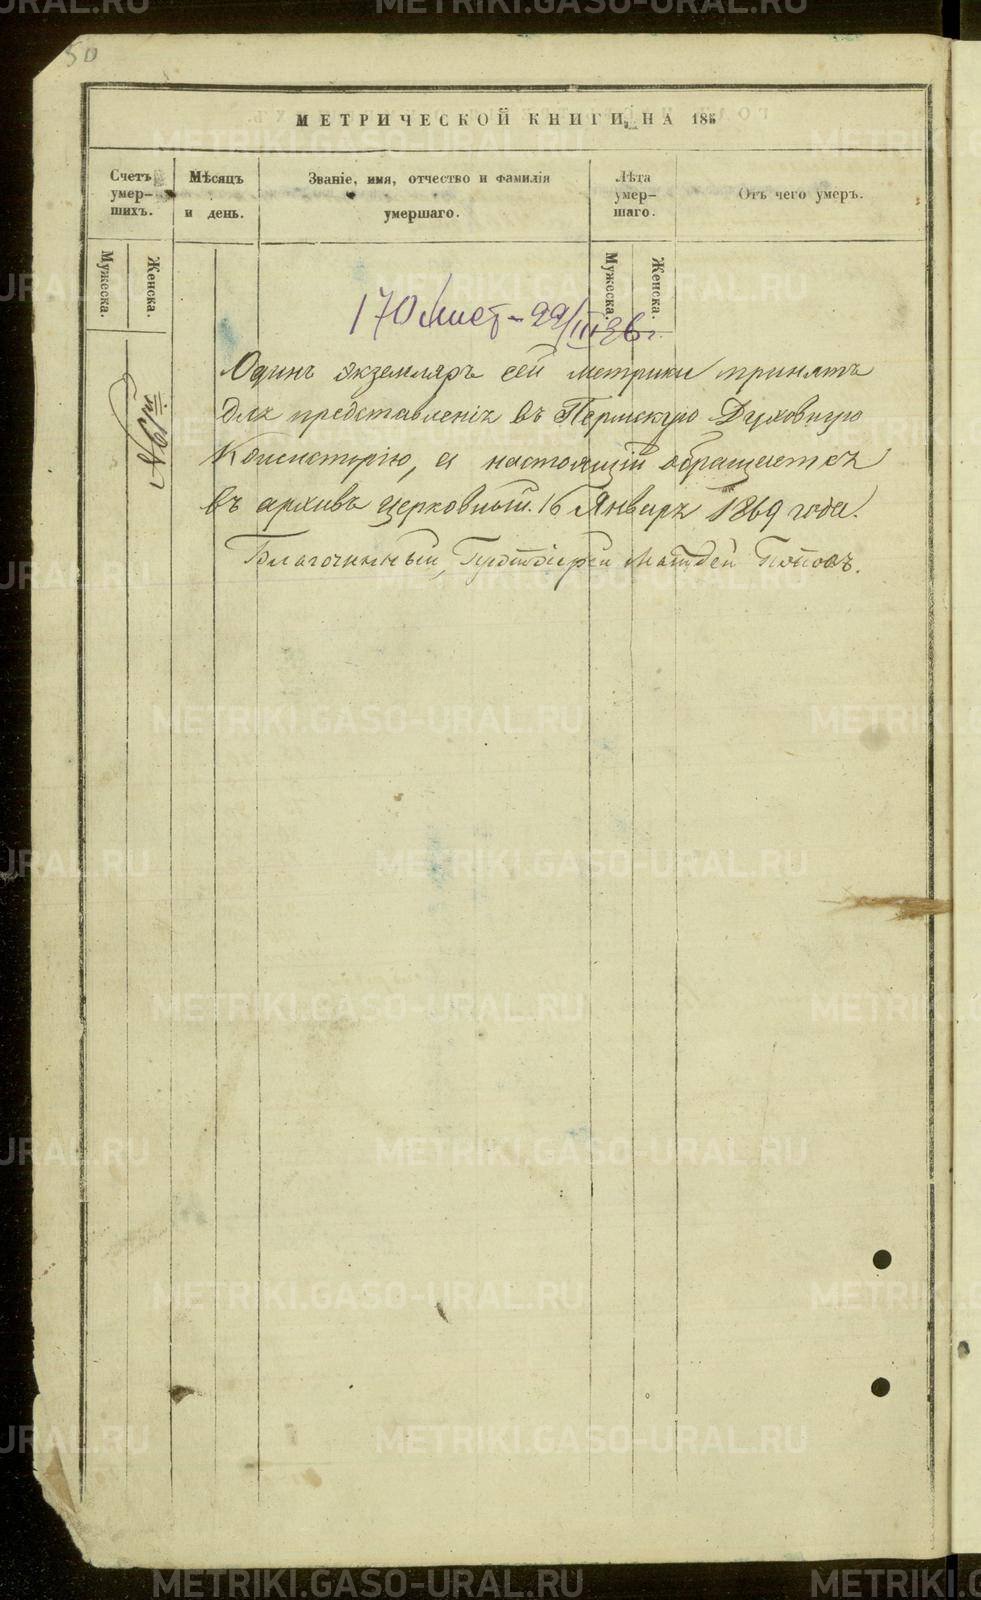 50
МЕТРИЧЕСКОЙ КНИГИ НА 185
Счетъ умер-шихъ.
Мѣсяцъ и день.
Званіе, имя, отчество и фамилія умершаго.
Лѣта умер-шаго.
Отъ чего умеръ.
Мужеска.
Женска.
Мужеска.
Женска.
170 лист - 22/III 36 г.
Одинъ экземляръ сей метрики принятъ
для представленія въ Пермскую Духовную
Консисторію, а настоящій обращается
въ архивъ церковный. 16 Января 1869 года.
Благочинный, Протоіерей Матѳей Поповъ.
METRIKI.GASO-URAL.RU